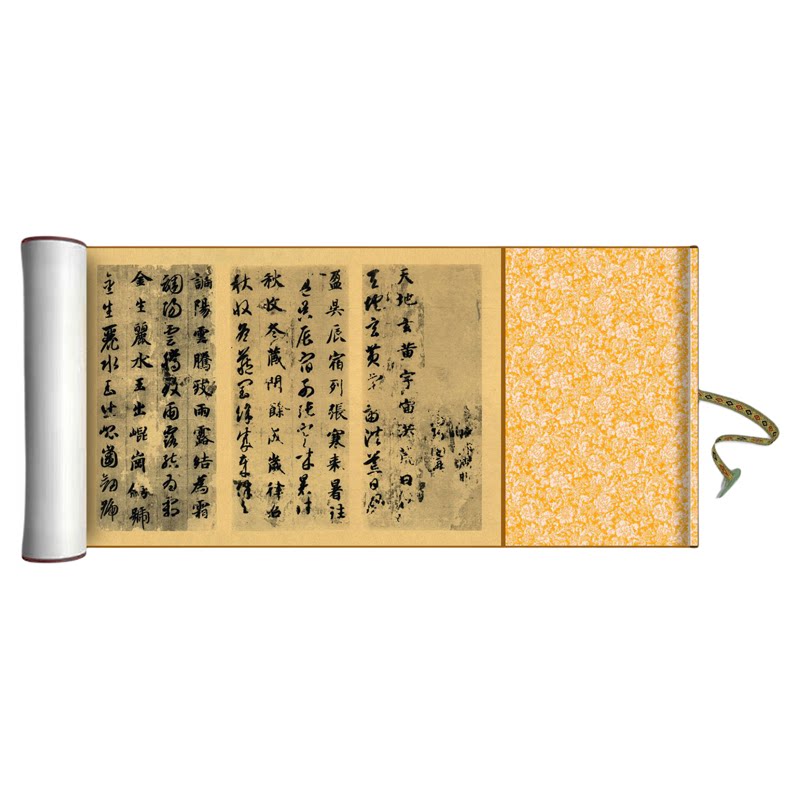 天地玄黄宇宙洪荒日月
天地玄黄宇宙洪荒日月
盈昃辰宿列張寒来暑往
盈昃辰宿列張寒来暑往
秋收冬藏閏餘成歲律吕
秋收冬藏閏餘成歲律吕
調陽雲騰致雨露結為霜
調陽雲騰致雨露結為霜
金生麗水玉出崐崗劒號
金生麗水玉出崐崗劒號